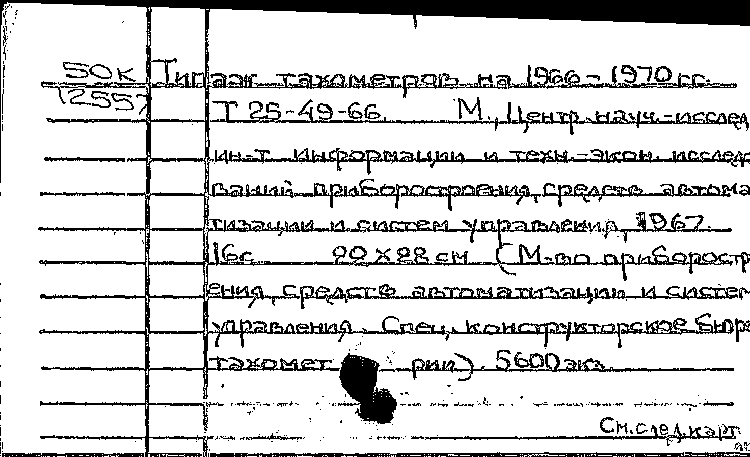 50К Типаж тахометров на 1966-1970 гг.
12557 Т 25-49-66. М., Центр. науч.-исслед
ин-т информации и техн.-экон. исслед
ваний приборостроения, средств автома
тизации и систем управления, 1967.
16с 20x28 см (М-во приборостр
ения, средств автоматизации и систем
управления. Спец. конструкторское бюро
тахомет рии). 5600 экз.
См. след. карт